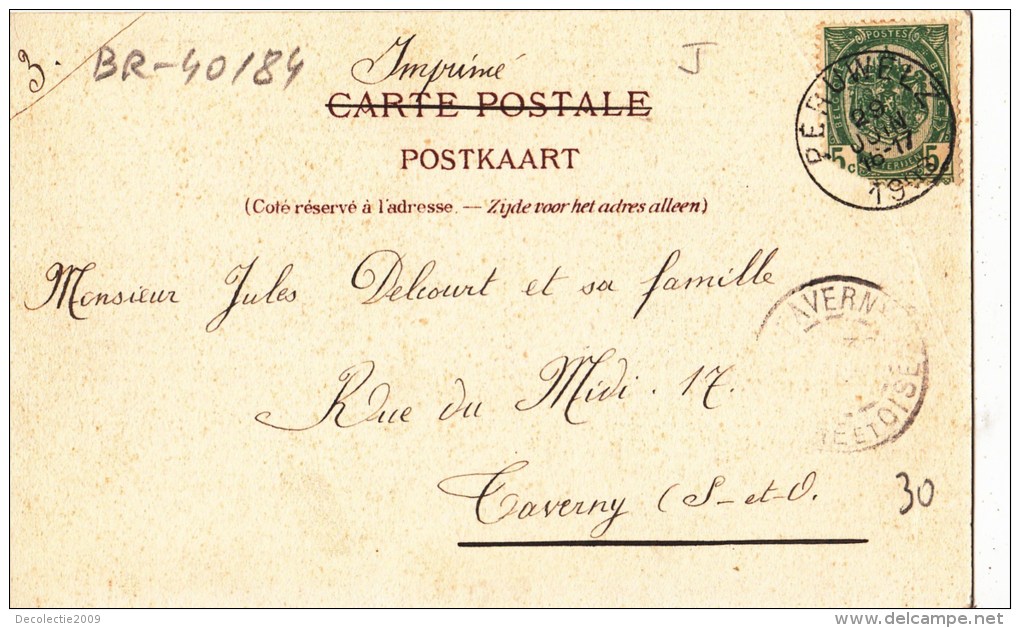 3.
BR-40/84
J
Imprimé
CARTE POSTALE
POSTKAART
(Coté réservé à l'adresse. — Zijde voor het adres alleen)
POSTES
5 c 5
PÉRUWELZ
29
JUIN
16-17
Monsieur Jules Delcourt et sa famille
Rue du Midi. 17.
Taverny (S-et-O.
TAVERNY
ET OISE
30
Decolectie2009
http://www.delcampe.net